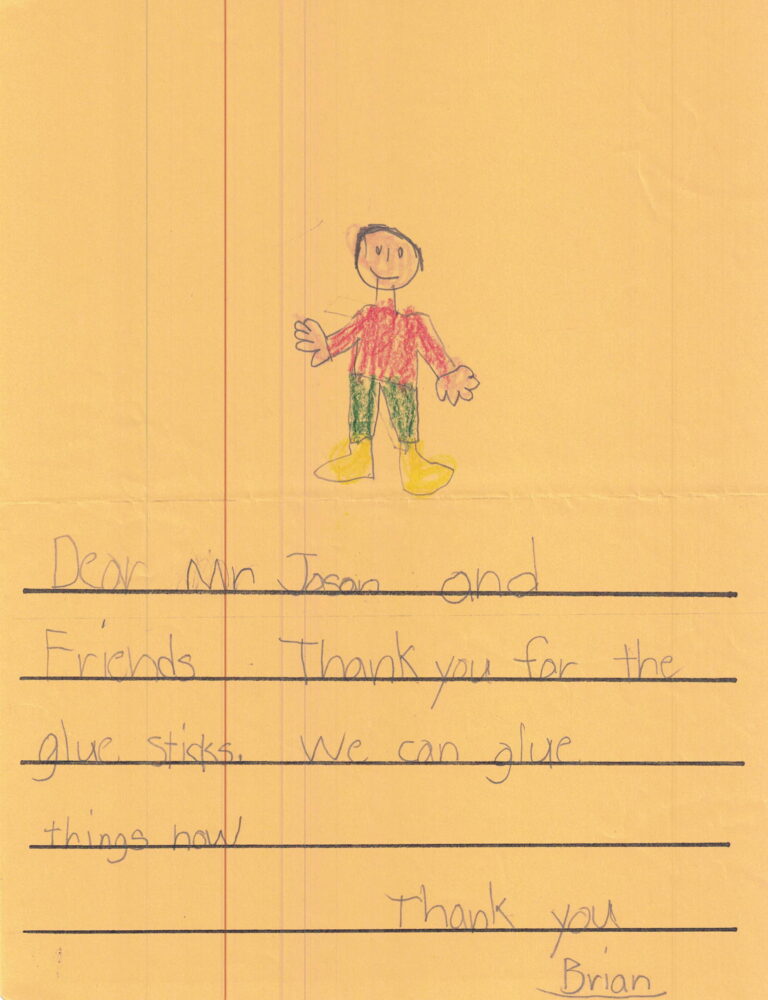 Dear Mr Jason and
Friends Thank you for the
glue sticks. We can glue
things now
Thank you
Brian